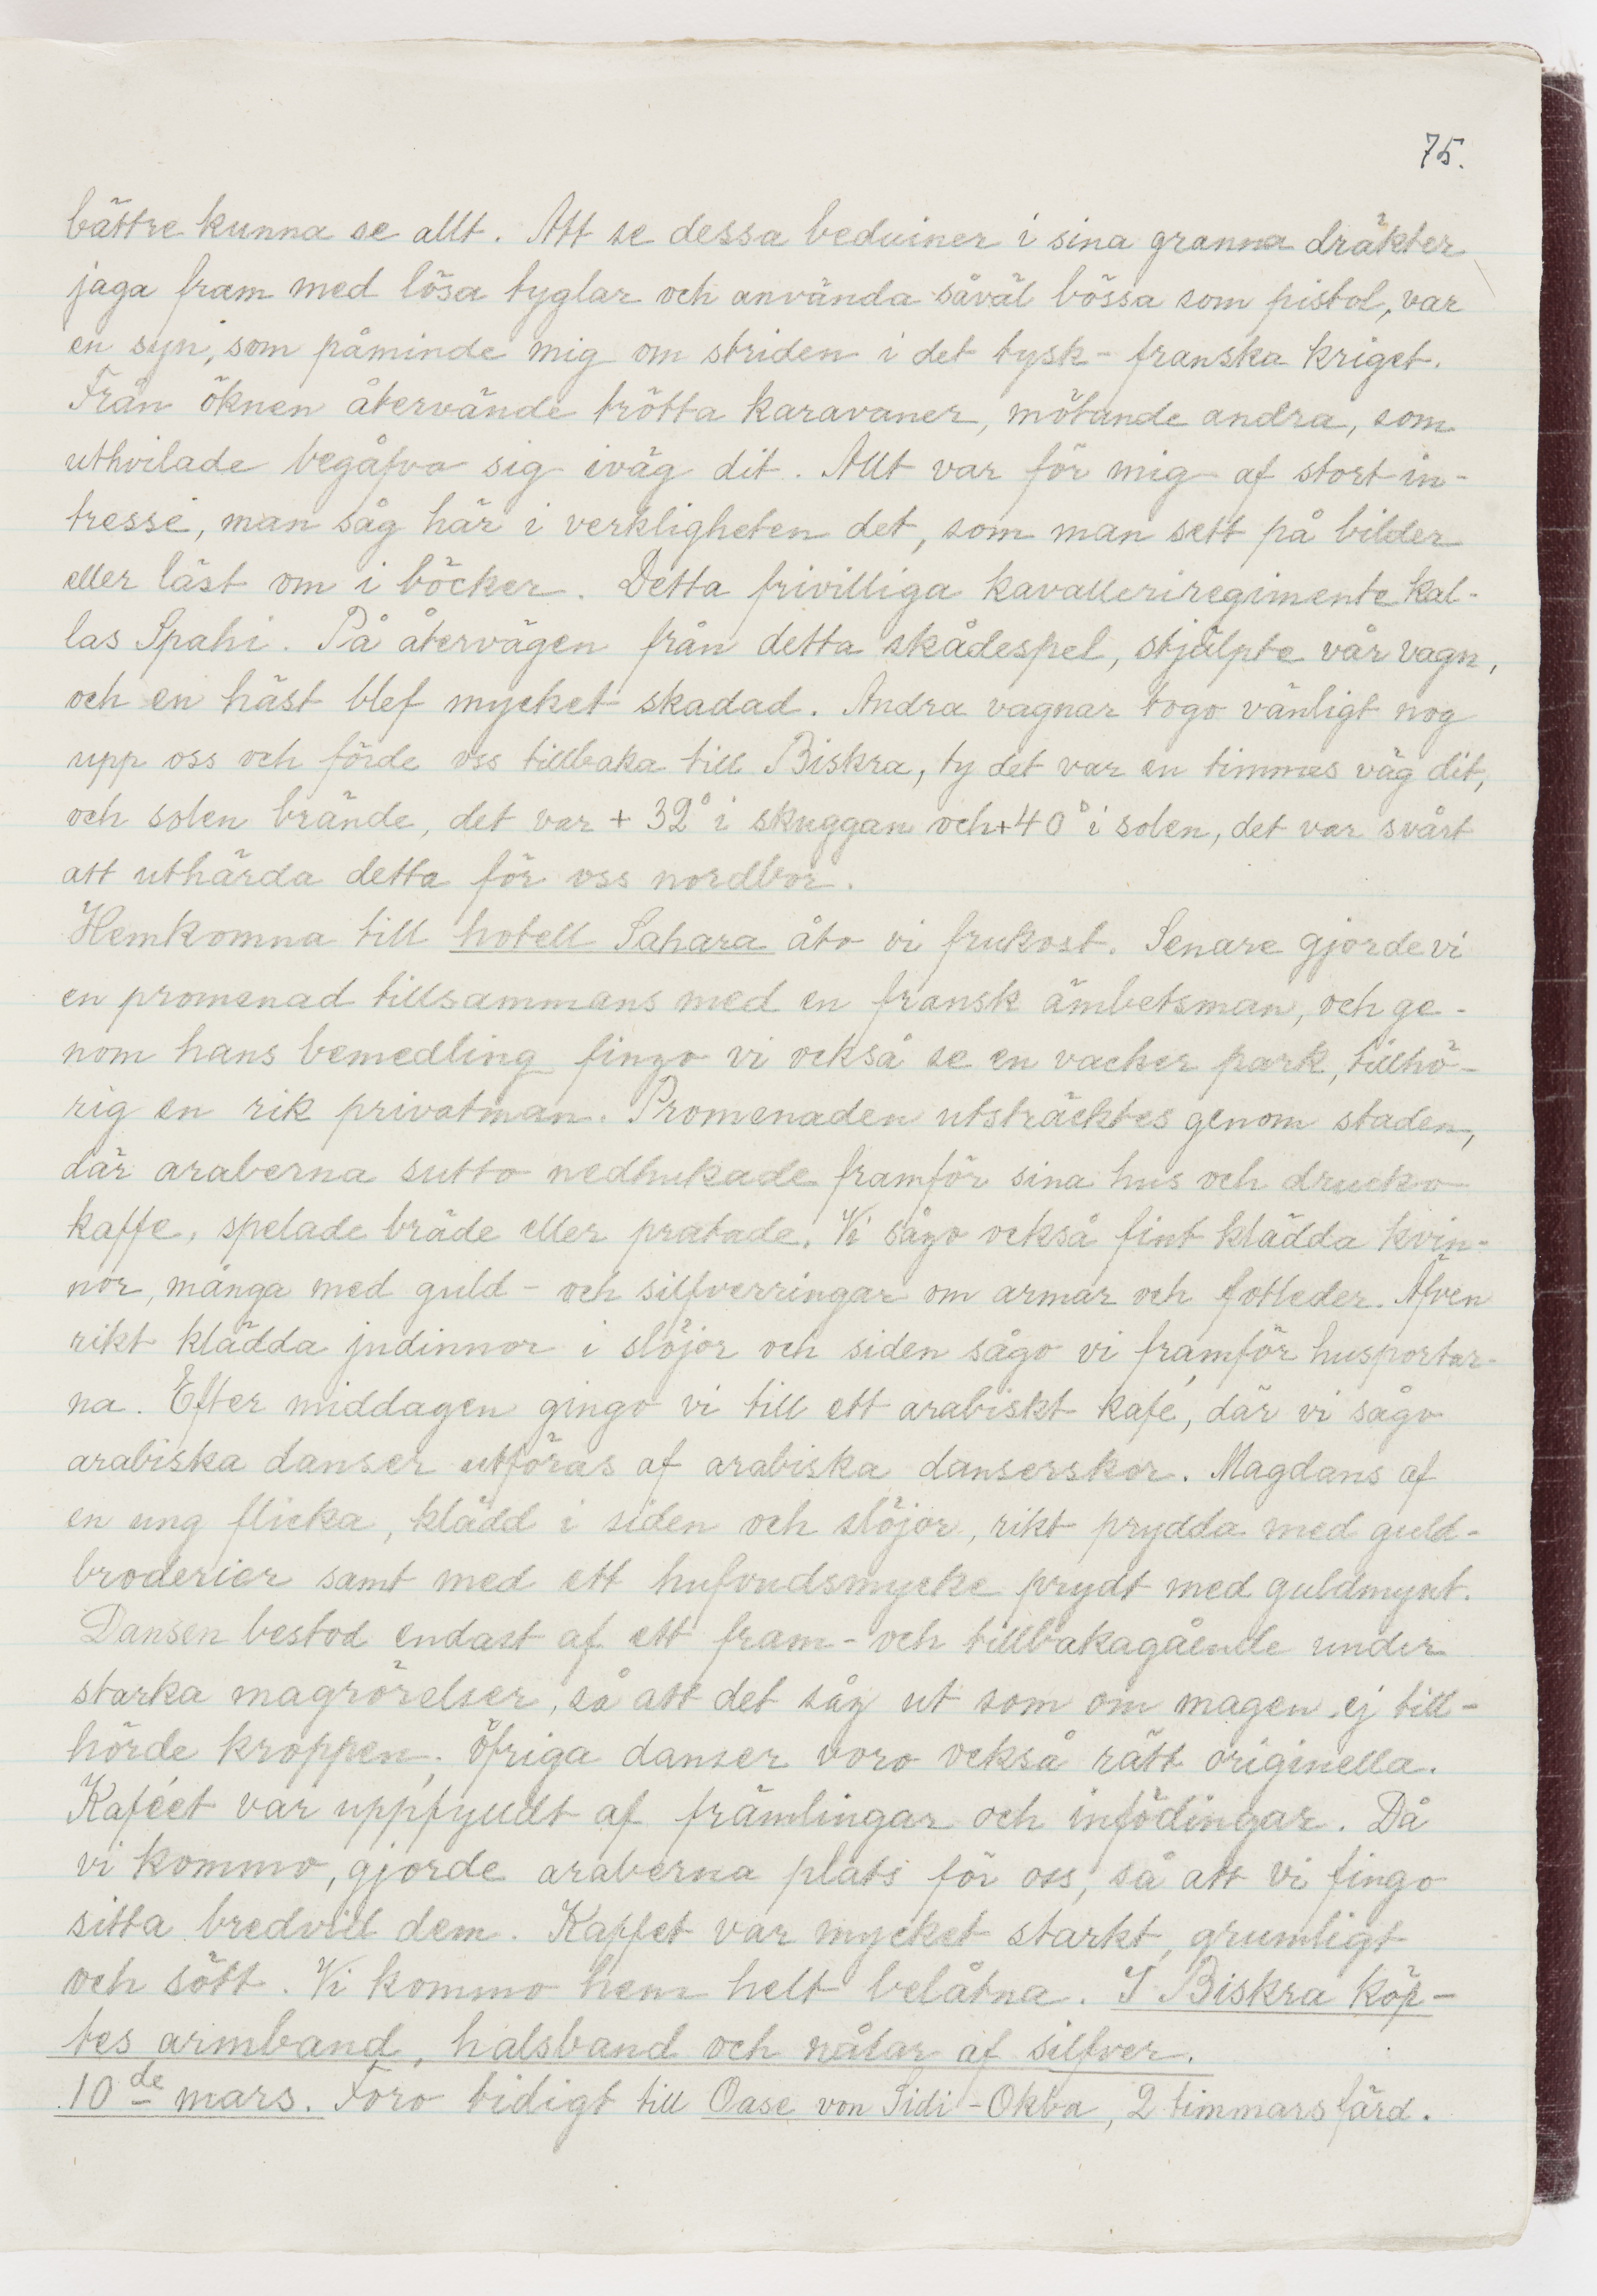 75.
bättre kunna se allt. Att se dessa beduiner i sina granna dräkter
jaga fram med lösa tyglar och använda såväl bössa som pistol, var
en syn, som påminde mig om striden i det tysk-franska kriget.
Från öknen återvände trötta karavaner, mötande andra, som
uthvilade begåfvo sig iväg dit. Allt var för mig af stort in-
tresse, man såg här i verkligheten det, som man sett på bilder
eller läst om i böcker. Detta frivilliga kavalleriregimente kal-
las Spahi. På återvägen från detta skådespel, stjälpte vår vagn,
och en häst blef mycket skadad. Andra vagnar togo vänligt nog
upp oss och förde oss tillbaka till Biskra, ty det var en timmes väg dit,
och solen brände, det var + 32° i skuggan och +40° i solen, det var svårt
att uthärda detta för oss nordbor.
Hemkomna till hotell Sahara åto vi frukost. Senare gjorde vi
en promenad tillsammans med en fransk ämbetsman, och ge-
nom hans bemedling fingo vi också se en vacker park, tillhö-
rig en rik privatman. Promenaden utsträcktes genom staden,
där araberna sutto nedhukade framför sina hus och drucko
kaffe, spelade bräde eller pratade. Vi sågo också fint klädda kvin-
nor, många med guld- och silfverringar om armar och fotleder. Äfven
rikt klädda judinnor i slöjor och siden sågo vi framför husportar-
na. Efter middagen gingo vi till ett arabiskt kafé, där vi sågo
arabiska danser utföras af arabiska danserskor. Magdans af
en ung flicka, klädd i siden och slöjor, rikt prydda med guld-
broderier samt med ett hufvudsmycke prydt med guldmynt.
Dansen bestod endast af ett fram- och tillbakagående under
starka magrörelser, så att det såg ut som om magen ej till-
hörde kroppen; öfriga danser voro också rätt originella.
Kaféet var uppfyudt af främlingar och infödingar. Då
vi kommo, gjorde araberna plats för oss, så att vi fingo
sitta bredvid dem. Kaffet var mycket starkt, grumligt
och sött. Vi kommo hem helt belåtna. I Biskra köp-
tes armband, halsband och nålar af silfver.
10de mars. Foro tidigt till Oase von Sidi-Okba, 2 timmars färd.